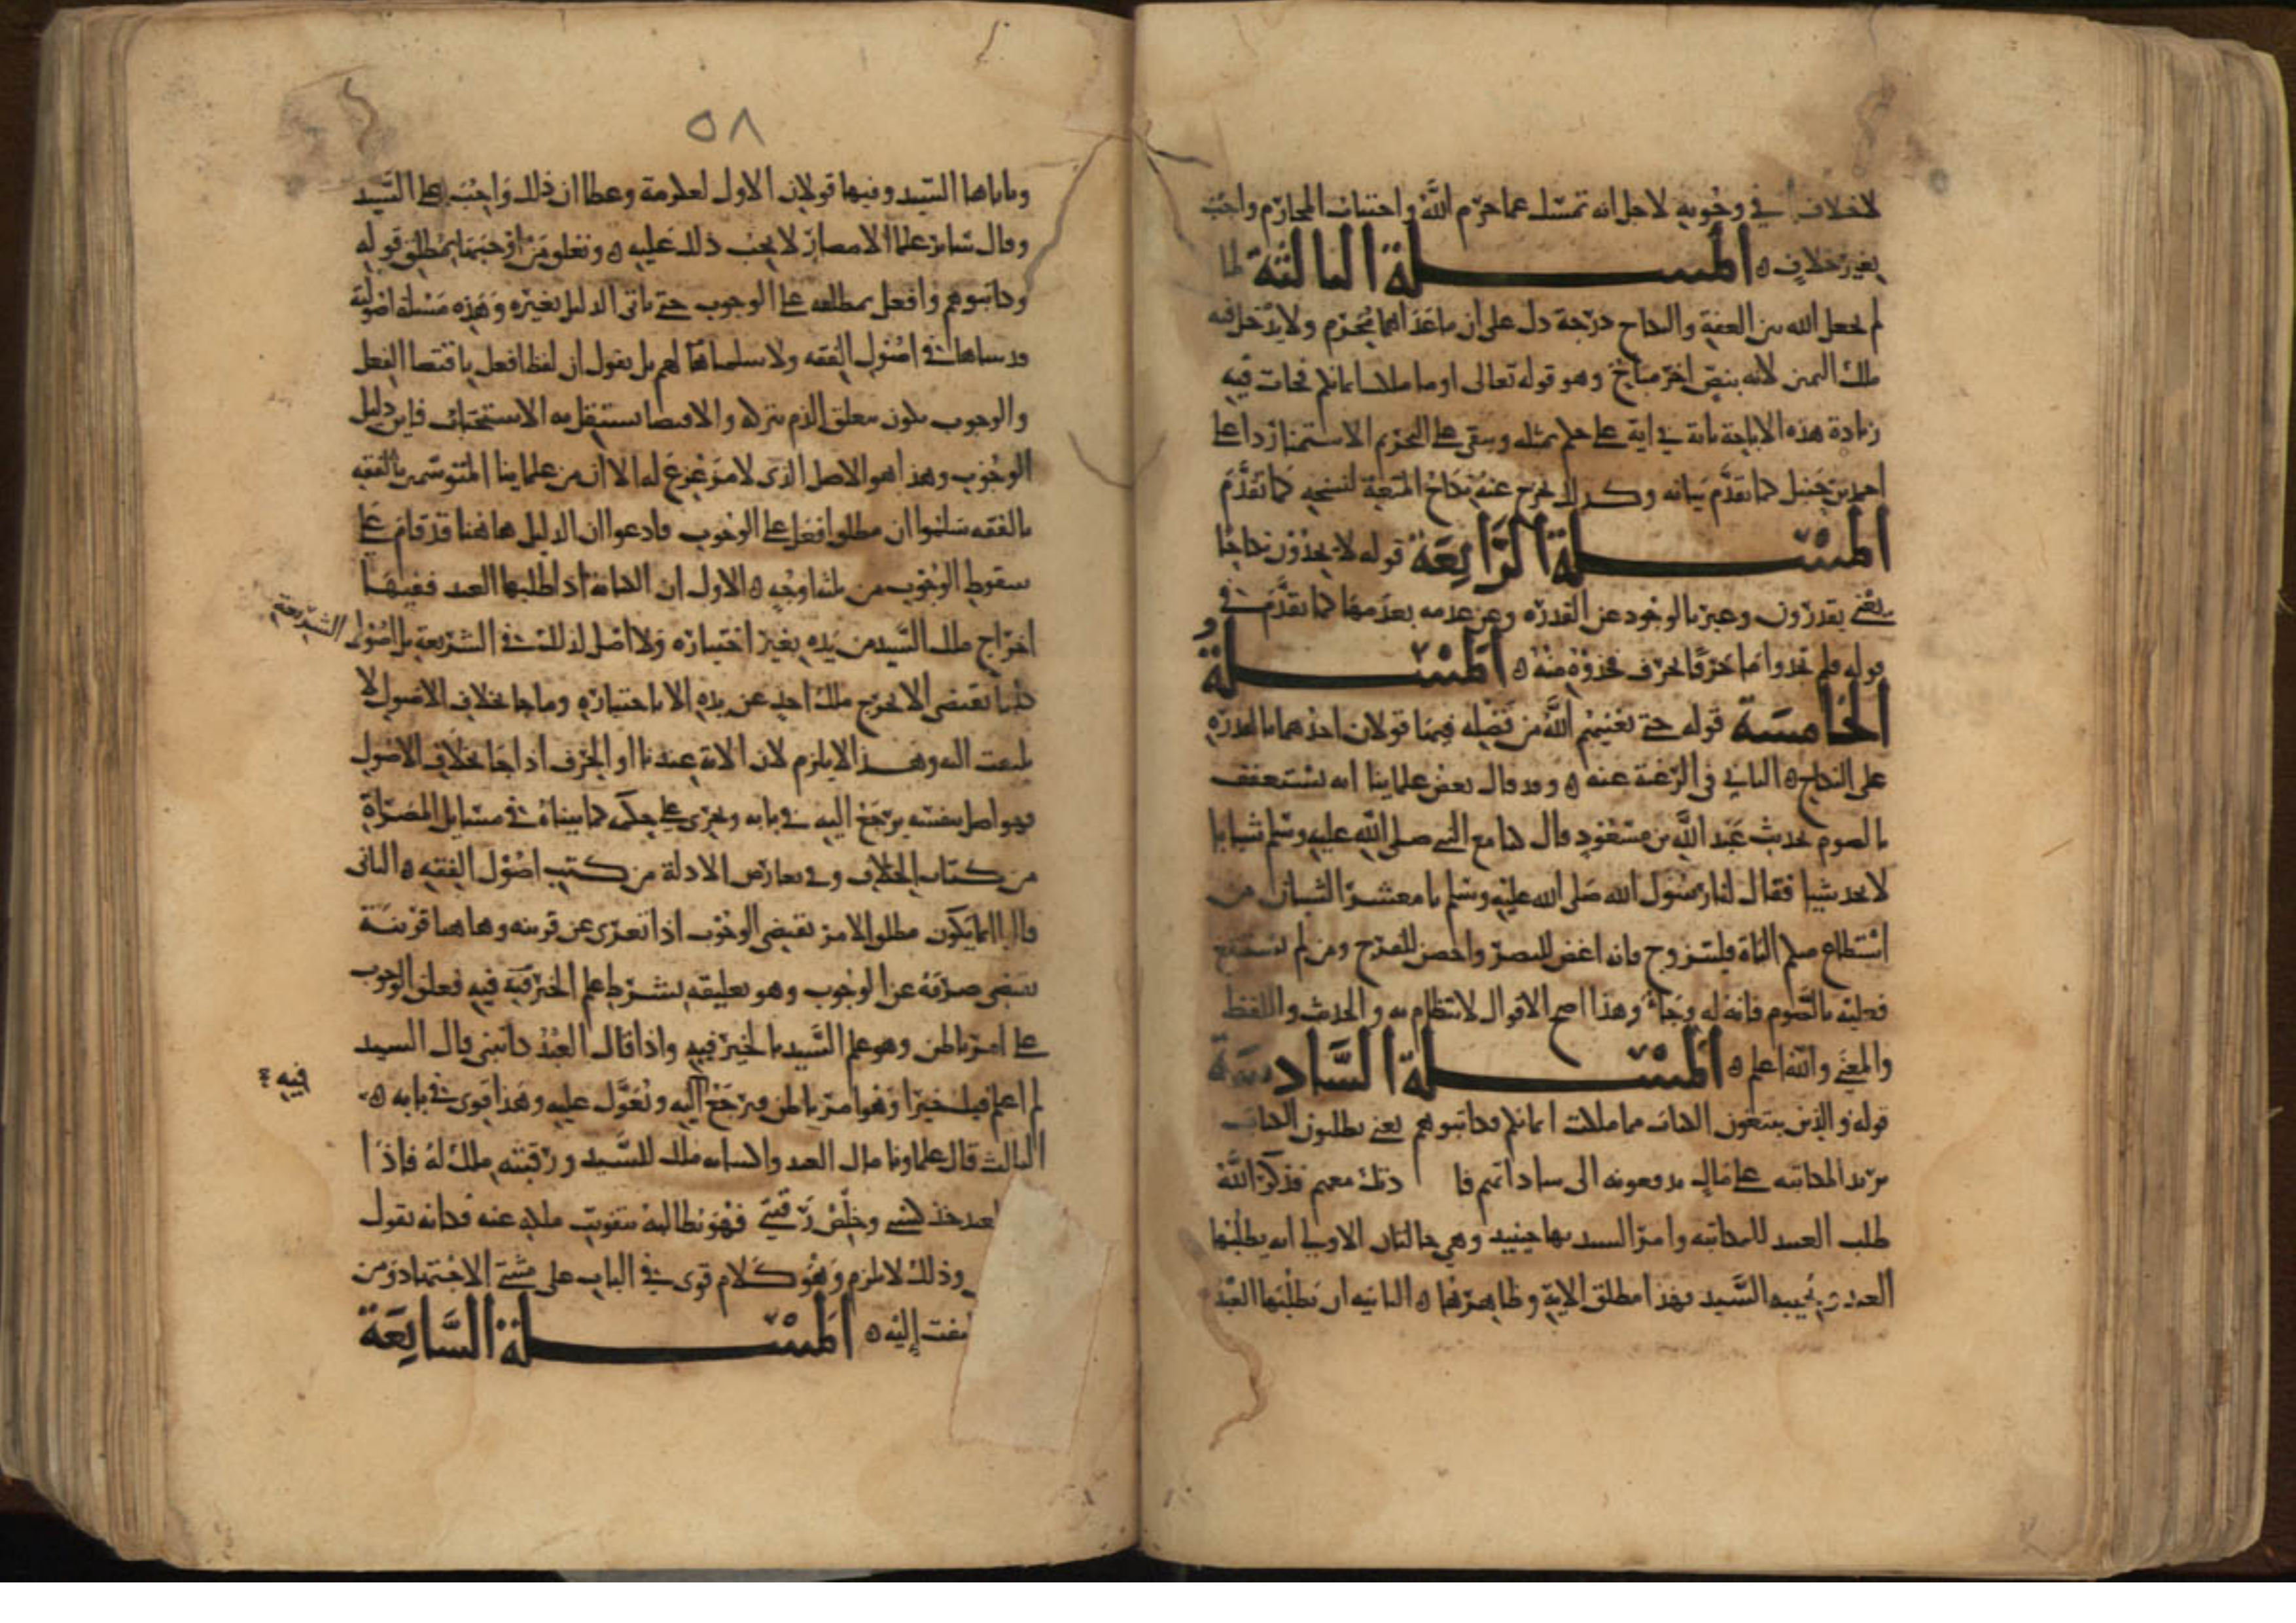 لا خلاف في وجوبه لاجل انه تمسك عما حرم الله واجتناب المحارم واجب
بغير خلاف ه المسلة الثالثة لما
لم يجعل الله بين العفة والنكاح درجة دل على ان ما عداهما محرم ولا يدخل فيه
ملك اليمين لانه بنص اخر مباح وهو قوله تعالى او ما ملكت ايمانكم فجات فيه
زيادة هذه الاباحة باية في اية على حكم مثله ويبقى على التحريم الاستمنا ردا على
احمد بن حنبل كما تقدم بيانه وكذلك يخرج عنه نكاح المتعة لنسخه كما تقدم
المسلة الرابعة قوله لا يجدون نكاحا
يعني يقدرون وعبر بالوجود عن القدرة وعن عدمه بعدمها كما تقدم في
قوله فلم تجدوا ما حرفا بحرف فخذوه منه ه المسلة
الخامسة قوله حتى يغنيهم الله من فضله فيها قولان احدهما بالقدرة
على النكاح ه الثاني في الرغبة عنه ه وقد قال بعض علماينا انه يستعفف
بالصوم لحديث عبد الله بن مسعود قال كنا مع النبي صلى الله عليه وسلم شبابا
لا نجد شيا فقال لنا رسول الله صلى الله عليه وسلم يا معشر الشباب من
استطاع منكم الباة فليتزوج فانه اغض للبصر واحصن للفرج ومن لم يستطع
فعليه بالصوم فانه له وجاء وهذا اصح الاقوال لانتظام به والحديث واللفظ
والمعنى والله اعلم ه المسلة السادسة
قوله والذين يبتغون الكتاب مما ملكت ايمانكم فكاتبوهم يعني يطلبون الكتاب
يريد المكاتبة على مال يدفعونه الى ساداتهم فا ذلك معهم فذكر الله
طلب العبد للمكاتبة وامر السيد بها حينيد وهي حالتان الاولى ان يطلبها
العبد ويجيبه السيد فهذا مطلق الاية وظاهرها ه الثانيه ان يطلبها العبد
٥٨
وياباها السيد وفيها قولان الاول لعكرمة وعطا ان ذلك واجب على السيد
وقال ساير علما الامصار لا يجب ذلك عليه ه وتعلق من اوجبها بمطلق قوله
وكاتبوهم وافعل بمطلقه على الوجوب حتى ياتي الدليل بغيره وهذه مسلة اصولية
قد بيناها في اصول الفقه ولا نسلمها لهم بل نقول ان لفظ افعل لاقتضا الفعل
والوجوب يكون بتعلق الذم بتركه والاقتضا يستقل به الاستحباب فاين دليل
الوجوب وهذا هو الاصل الذي لا مزعزع له الا ان من علماينا المتوسمين بالفقه
بالفقه سلموا ان مطلق افعل على الوجوب فادعوا ان الدليل هاهنا قد قام على
سقوط الوجوب من ثلثة اوجه ه الاول ان الكتابة اذا طلبها العبد ففيها
اخراج ملك السيد من يده بغير اختياره ولا اصل لذلك في الشريعة بل اصول الشريعة
كلها تقتضي الا يخرج ملك احد عن يده الا باختياره وما جا بخلاف الاصول لا
يلتفت اليه وهذا لا يلزم لان الاية عندنا او الخبر اذا جا بخلاف الاصول
فهو اصل بنفسه يرجع اليه في بابه ويجري على حكمه كما بيناه في مسايل المصراة
من كتاب الخلاف وفي تعارض الادلة من كتب اصول الفقه ه الثاني
قالوا انما يكون مطلق الامر يقتضي الوجوب اذا تعرى عن قرينه وهاهنا قرينة
تقتضي صرفه عن الوجوب وهو تعليقه بشرط علم الخير فيه فعلق الوجوب
على امر باطن وهو علم السيد بالخير فيه واذا قال العبد كاتبني قال السيد
لم اعلم فيك خيرا وهو امر باطن فيرجع اليه ويعول عليه وهذا قوي في بابه ه
فيه
الثالث قال علماونا مال العبد واكتسابه ملك للسيد ورقبته ملك له فاذا
العبد خذ كسبي وخلص رقبتي فهو يطالبه بتفويت ملكه عنه فكانه يقول
وذلك لا يلزم وهو كلام قوي في الباب على مثبتي الاجتهاد ومن
يلتفت إليه ه المسلة السابعة